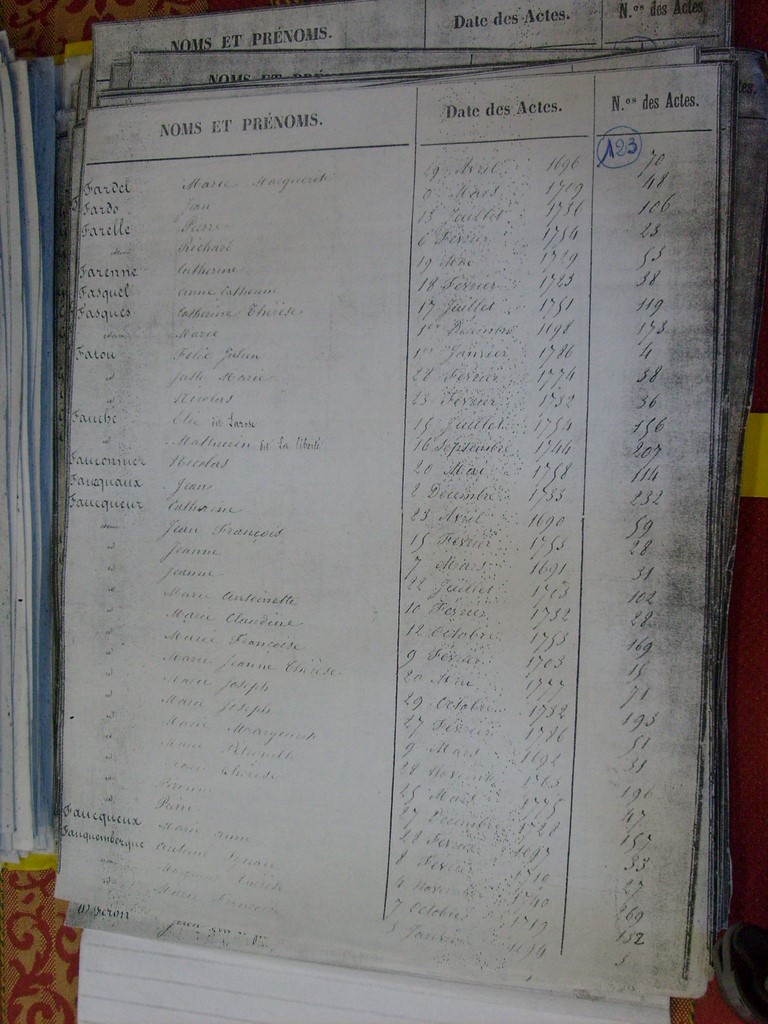 NOMS ET PRÉNOMS. Date des Actes. N.os des Actes
NOMS ET PRÉNOMS.
NOMS ET PRÉNOMS. Date des Actes. N.os des Actes.
123
Fardel Marie Marguerite 19 Avril 1696 70
Fardo Jean Mars 1709 48
Farelle Pierre 13 Juillet 1736 106
Richard 6 Février 1754 23
Farenne Catherine 19 Mai 1729 53
Fasquel Anne Catherine 18 Février 1723 38
Fasques Catherine Thérèse 17 Juillet 1751 119
Marie 1er Décembre 1698 173
Fatou Félix Julien 1er Janvier 1786 4
id Marie 28 Février 1774 38
id Nicolas 23 Février 1732 36
Fauche Elie de Larose 15 Juillet 1754 156
id Mathurin de La liberté 16 Septembre 1744 207
Fauconnier Nicolas 20 Mai 1758 114
Faucquaux Jean 2 Décembre 1753 232
Faucqueur Catherine 23 Avril 1690 59
Jean François 15 Février 1753 28
id Jeanne 7 Mars 1691 31
id Jeanne 22 Juillet 1703 102
id Marie Antoinette 10 Février 1732 22
id Marie Claudine 12 Octobre 1753 169
id Marie Françoise 9 Février 1703 15
id Marie Jeanne Thérèse 20 71
id Marie Joseph 29 Octobre 1732 193
id Marie Joseph 27 Février 1786 51
id Marie Marguerite 9 Mars 1692 31
id Marie Pétronille 28 Novembre 1763 196
id Thérèse 25 Mars 47
id 27 Décembre 1728 157
Faucqueux Pierre 22 Février 1697 33
Fauquembergue Marie Anne 8 Février 1710 27
Antoine Ignace 4 Novembre 1740 269
Thérèse 7 Octobre 1719 152
Marie Françoise 3 Janvier 1694 3